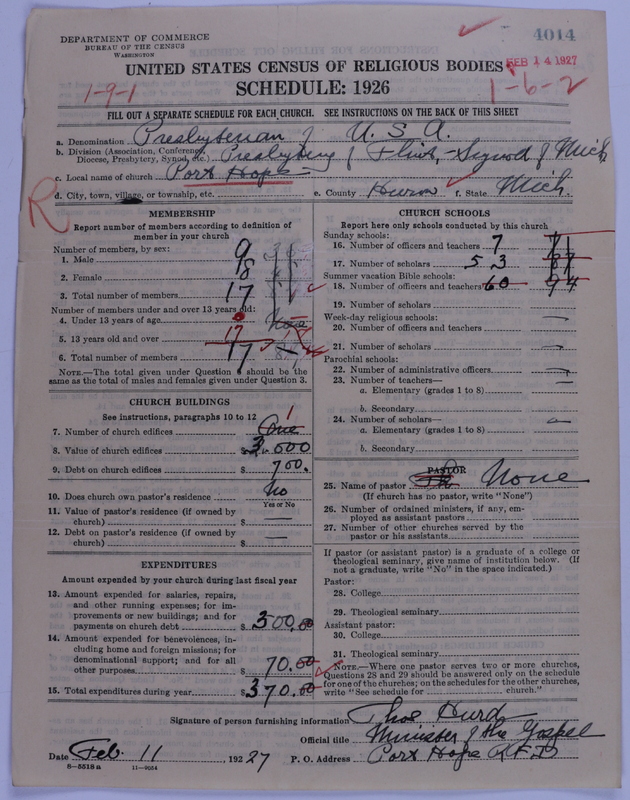 DEPARTMENT OF COMMERCE
BUREAU OF THE CENSUS
WASHINGTON
4014
FEB 14 1927
UNITED STATES CENSUS OF RELIGIOUS BODIES
1-9-1
SCHEDULE: 1926
1-6-2
FILL OUT A SEPARATE SCHEDULE FOR EACH CHURCH. SEE INSTRUCTIONS ON THE BACK OF THIS SHEET
a. Denomination Presbyterian U. S. A.
b. Division (Association, Conference, Diocese, Presbytery, Synod, etc.) Presbytery of Flint, - Synod of Mich
c. Local name of church Port Hope
R
d. City, town, village, or township, etc.
e. County Huron f. State Mich.
MEMBERSHIP
Report number of members according to definition of
member in your church
Number of members, by sex:
1. Male 9
2. Female 8
3. Total number of members 17
Number of members under and over 13 years old:
4. Under 13 years of age None
5. 13 years old and over 17
6. Total number of members 17
NOTE.—The total given under Question 6 should be the
same as the total of males and females given under Question 3.
CHURCH BUILDINGS
See instructions, paragraphs 10 to 12
7. Number of church edifices One 1
8. Value of church edifices $ 3,000
9. Debt on church edifices $ 700.
10. Does church own pastor's residence No
Yes or No
11. Value of pastor's residence (if owned by
church) $ —
12. Debt on pastor's residence (if owned by
church) $ —
EXPENDITURES
Amount expended by your church during last fiscal year
13. Amount expended for salaries, repairs,
and other running expenses; for im-
provements or new buildings; and for
payments on church debt $ 300.00
14. Amount expended for benevolences, in-
cluding home and foreign missions; for
denominational support; and for all
other purposes $ 70.00
15. Total expenditures during year $ 370.00
CHURCH SCHOOLS
Report here only schools conducted by this church
Sunday schools:
16. Number of officers and teachers 7
17. Number of scholars 53
Summer vacation Bible schools:
18. Number of officers and teachers 60
19. Number of scholars
Week-day religious schools: —
20. Number of officers and teachers
21. Number of scholars —
Parochial schools:
22. Number of administrative officers —
23. Number of teachers— —
a. Elementary (grades 1 to 8)
b. Secondary
24. Number of scholars— —
a. Elementary (grades 1 to 8)
b. Secondary
PASTOR
25. Name of pastor None
(If church has no pastor, write "None")
26. Number of ordained ministers, if any, em-
ployed as assistant pastors
27. Number of other churches served by the
pastor or his assistants
If pastor (or assistant pastor) is a graduate of a college or
theological seminary, give name of institution below. (If
not a graduate, write "No" in the space indicated.)
Pastor:
28. College
29. Theological seminary
Assistant pastor:
30. College
31. Theological seminary
NOTE.—Where one pastor serves two or more churches,
Questions 28 and 29 should be answered only on the schedule
for one of the churches; on the schedules for the other churches,
write "See schedule for church."
Signature of person furnishing information Thos Hurd
Official title Minister of the Gospel
Date Feb. 11, 1927 P. O. Address Port Hope R.F.D
8-5518 a 11-9054